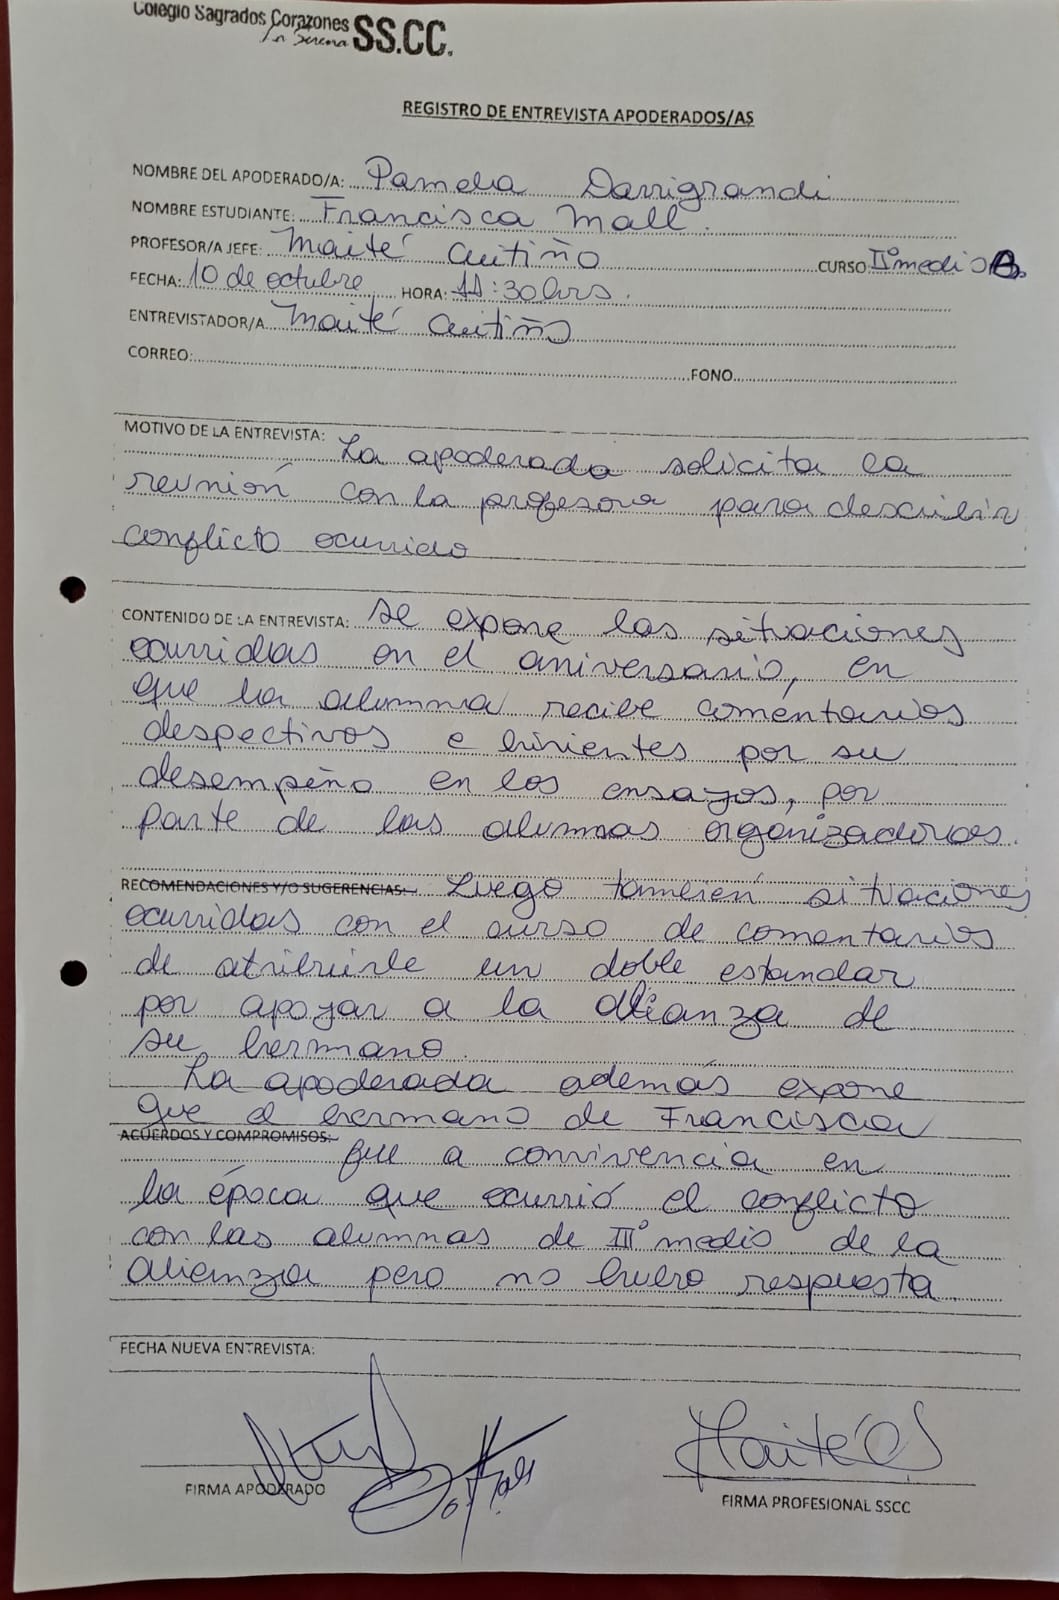 Colegio Sagrados Corazones
La Serena SS.CC.
REGISTRO DE ENTREVISTA APODERADOS/AS
NOMBRE DEL APODERADO/A: Pamela Darrigrandi
NOMBRE ESTUDIANTE: Francisca Mall.
PROFESOR/A JEFE: Maité Cutiño CURSO IIº medio B.
FECHA: 10 de octubre HORA: 11:30 hrs.
ENTREVISTADOR/A Maité Cutiño
CORREO: FONO
MOTIVO DE LA ENTREVISTA: La apoderada solicita la
reunión con la profesora para describir
conflicto ocurrido
CONTENIDO DE LA ENTREVISTA: Se expone las situaciones
ocurridas en el aniversario, en
que la alumna recibe comentarios
despectivos e hirientes por su
desempeño en los ensayos, por
parte de las alumnas organizadoras.
RECOMENDACIONES Y/O SUGERENCIAS: Luego también situaciones
ocurridas con el curso de comentarios
de atribuirle un doble estandar
por apoyar a la alianza de
su hermano.
La apoderada además expone
que el hermano de Francisca
ACUERDOS Y COMPROMISOS: fue a convivencia en
la época que ocurrió el conflicto
con las alumnas de IIIº medio de la
alianza pero no hubo respuesta.
FECHA NUEVA ENTREVISTA:
Maité
FIRMA APODERADO
FIRMA PROFESIONAL SSCC